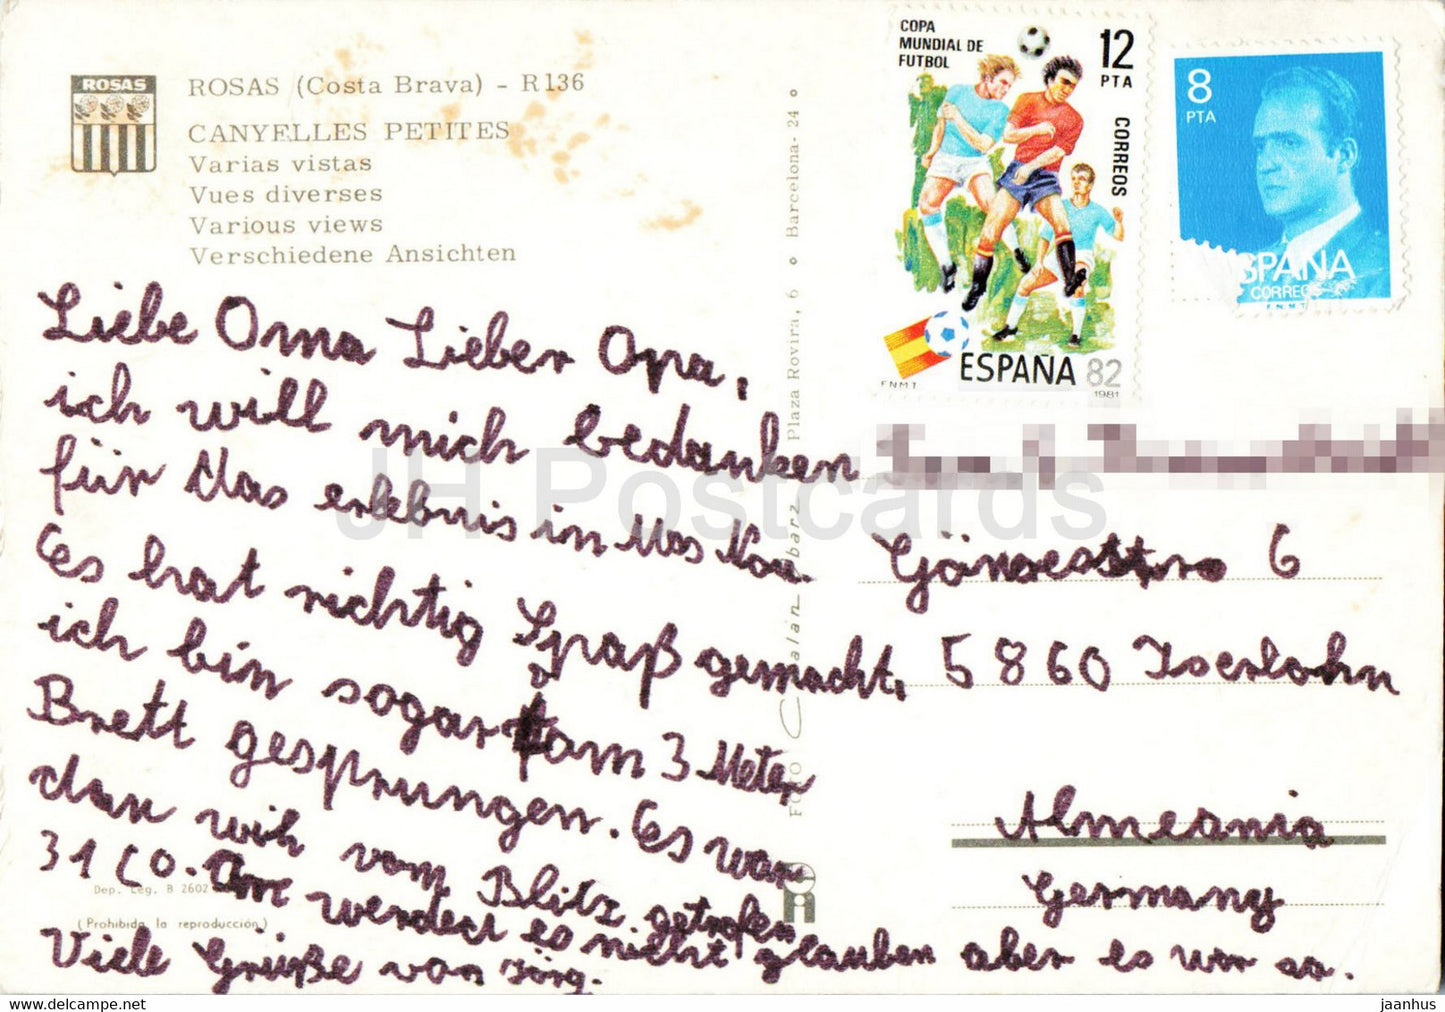 ROSAS
ROSAS (Costa Brava) - R136
CANYELLES PETITES
Varias vistas
Vues diverses
Various views
Verschiedene Ansichten
Liebe Oma Lieber Opa,
ich will mich bedanken
für das erlebnis in Mas Nou.
Es hat richtig Spaß gemacht.
ich bin sogar am 3 Meter
Brett gesprungen. Es war
dan wih vom Blitz getrofen
31 CO. werdect es nicht glauben aber es war so.
Viele Grüße von Jörg.
Dep. Leg. B 2602
(Prohibida la reproducción)
FOTO Plaza Rovira, 6 ∘ Barcelona - 24 ∘
COPA
MUNDIAL DE
FUTBOL
12
PTA
CORREOS
ESPAÑA 82
FNMT
1981
8
PTA
ESPAÑA
CORREOS
F.N.M.T
6
5860 Iserlohn
Almeania
Germany
JH Postcards
jaanhus - HipPostcard.com